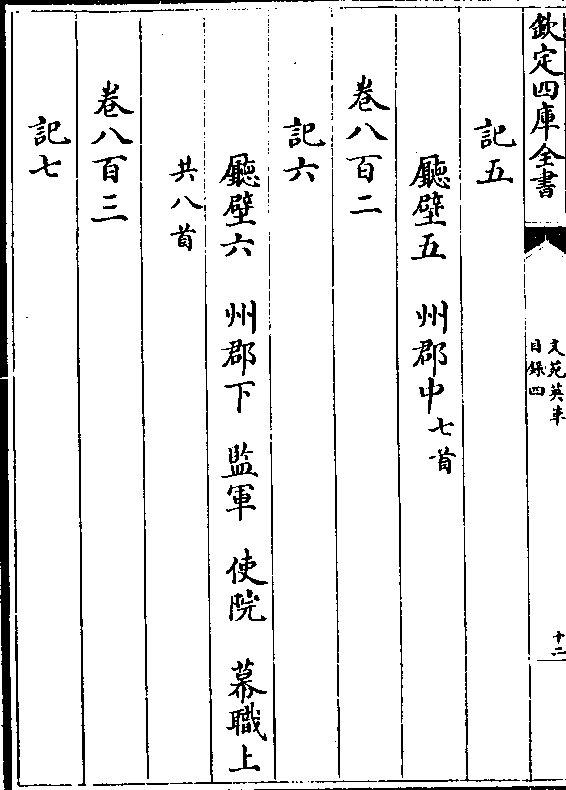 欽定四庫全書
文苑英華
目錄四
十二
記五
廳壁五 州郡中七首
卷八百二
記六
廳壁六 州郡下 監軍 使院 幕職上
共八首
卷八百三
記七